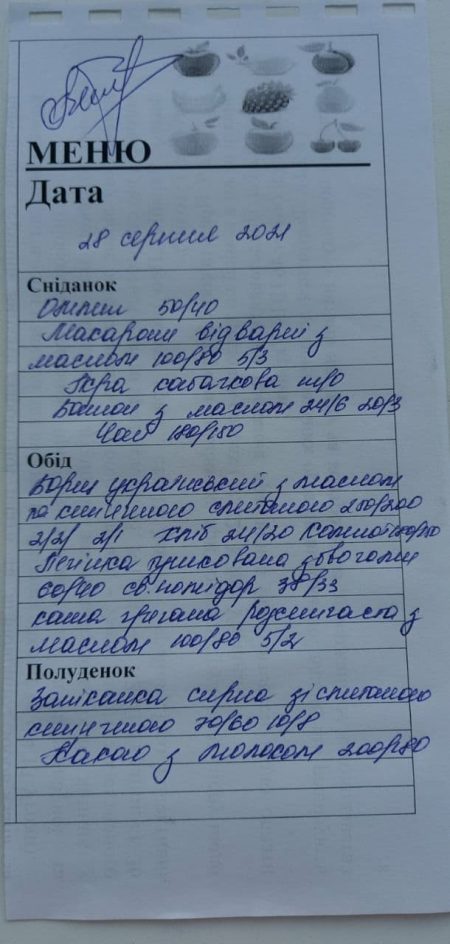 МЕНЮ
Дата
28 серпня 2021
Сніданок
Омлет 50/40
Макарони відварні з
маслом 100/80 5/3
Ікра кабачкова
Батон з маслом 24/6 20/3
Чай 180/150
Обід
Борщ український з маслом
та кип'яченою сметаною 250/200
2/2/ 2/1 Хліб 24/20 Компот
Печінка тушкована з овочами
60/40 св. помідор 38/33
каша гречана розсипчаста з
маслом 100/80 5/2
Полуденок
Запіканка сирна зі сметаною
кип'яченою 70/60 10/8
Какао з молоком 200/180